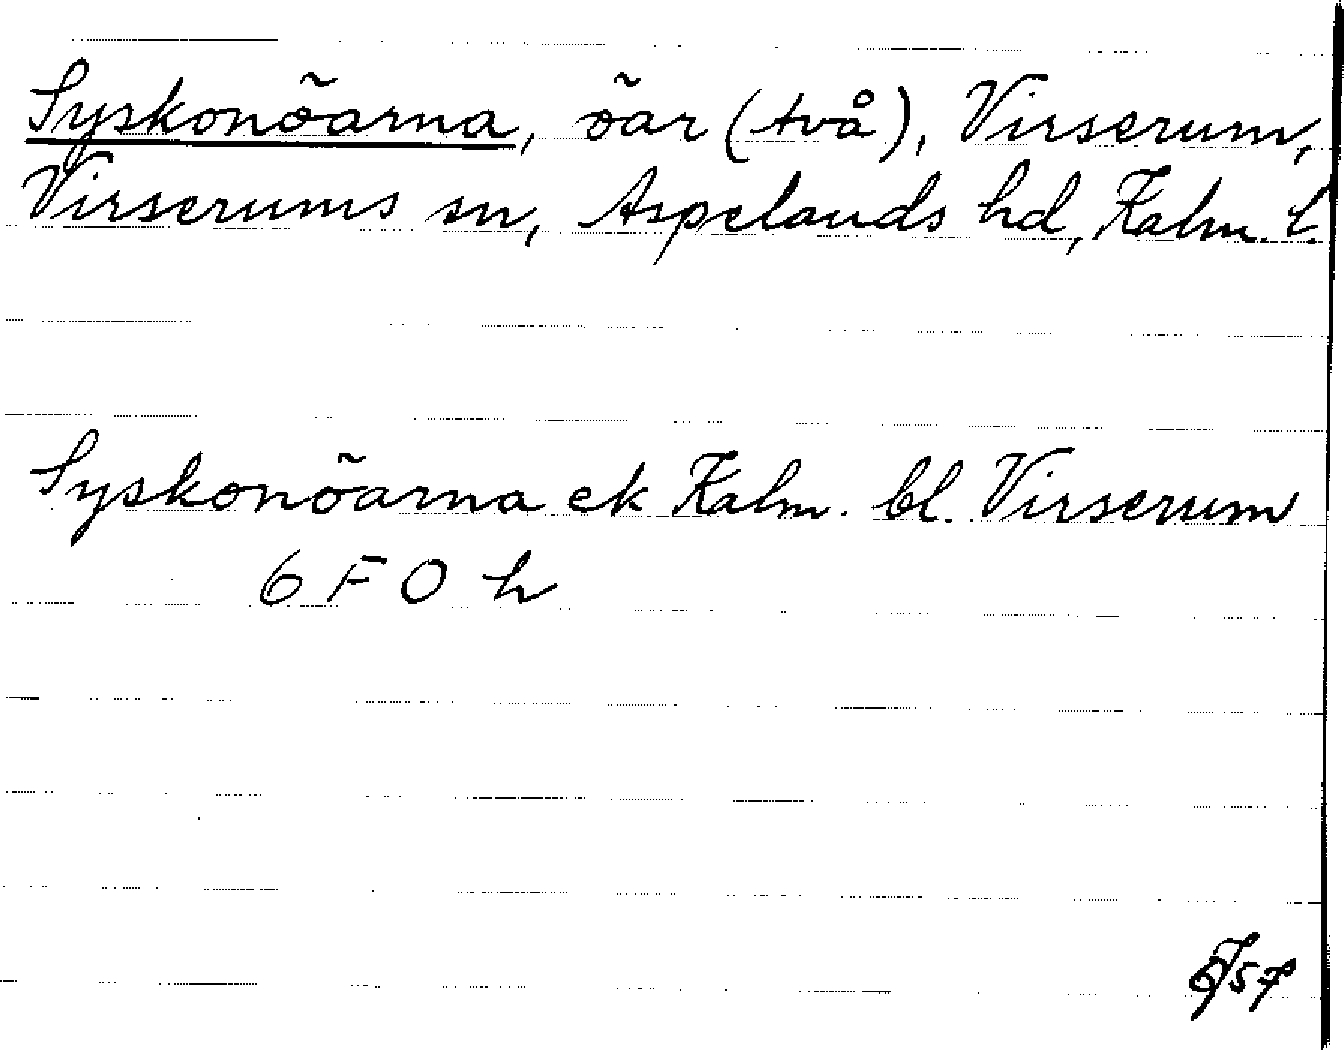 Syskonöarna, öar (två), Virserum,
Virserums sn, Aspelands hd, Kalm. l.
Syskonöarna ek Kalm. bl. Virserum
6 F 0 h